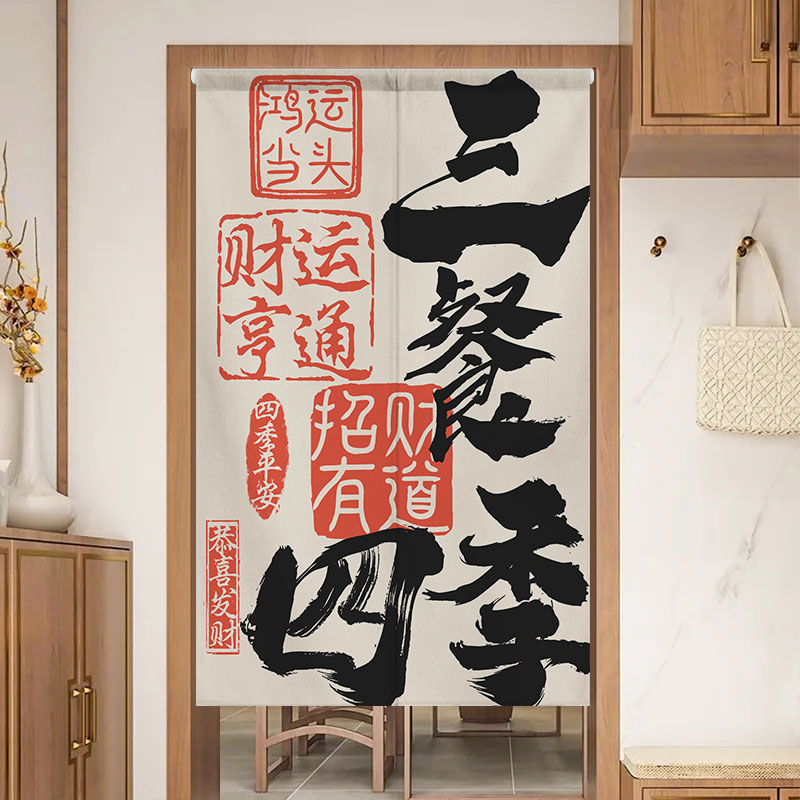 三
餐
四季
鸿运
当头
财运
亨通
招财
有道
四季平安
恭喜发财